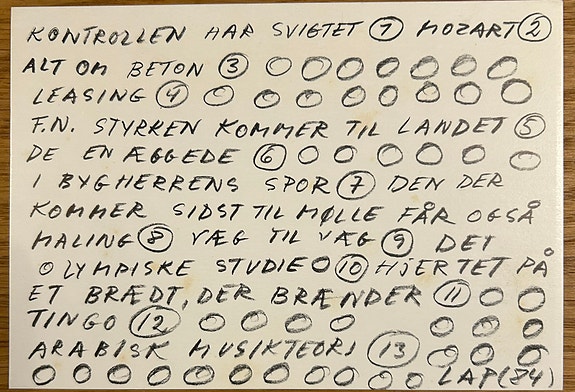 KONTROLLEN HAR SVIGTET 1 MOZART 2
ALT OM BETON 3
LEASING 4
F.N. STYRKEN KOMMER TIL LANDET 5
DE ENÆGGEDE 6
I BYGHERRENS SPOR 7 DEN DER
KOMMER SIDST TIL MØLLE FÅR OGSÅ
MALING 8 VÆG TIL VÆG 9 DET
OLYMPISKE STUDIE 10 HJERTET PÅ
ET BRÆDT, DER BRÆNDER 11
TINGO 12
ARABISK MUSIKTEORI 13
LAP(84)